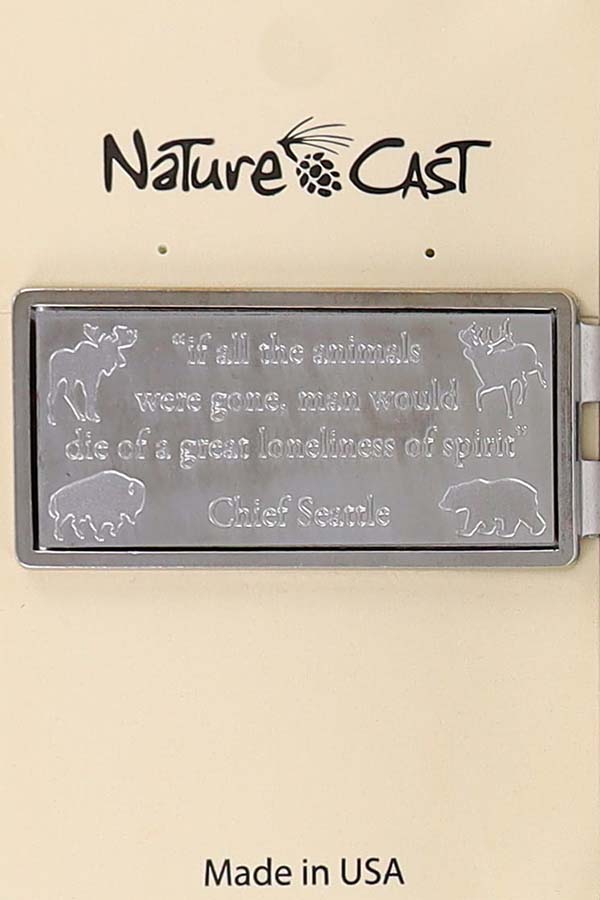 Nature Cast
“if all the animals
were gone, man would
die of a great loneliness of spirit”
Chief Seattle
Made in USA